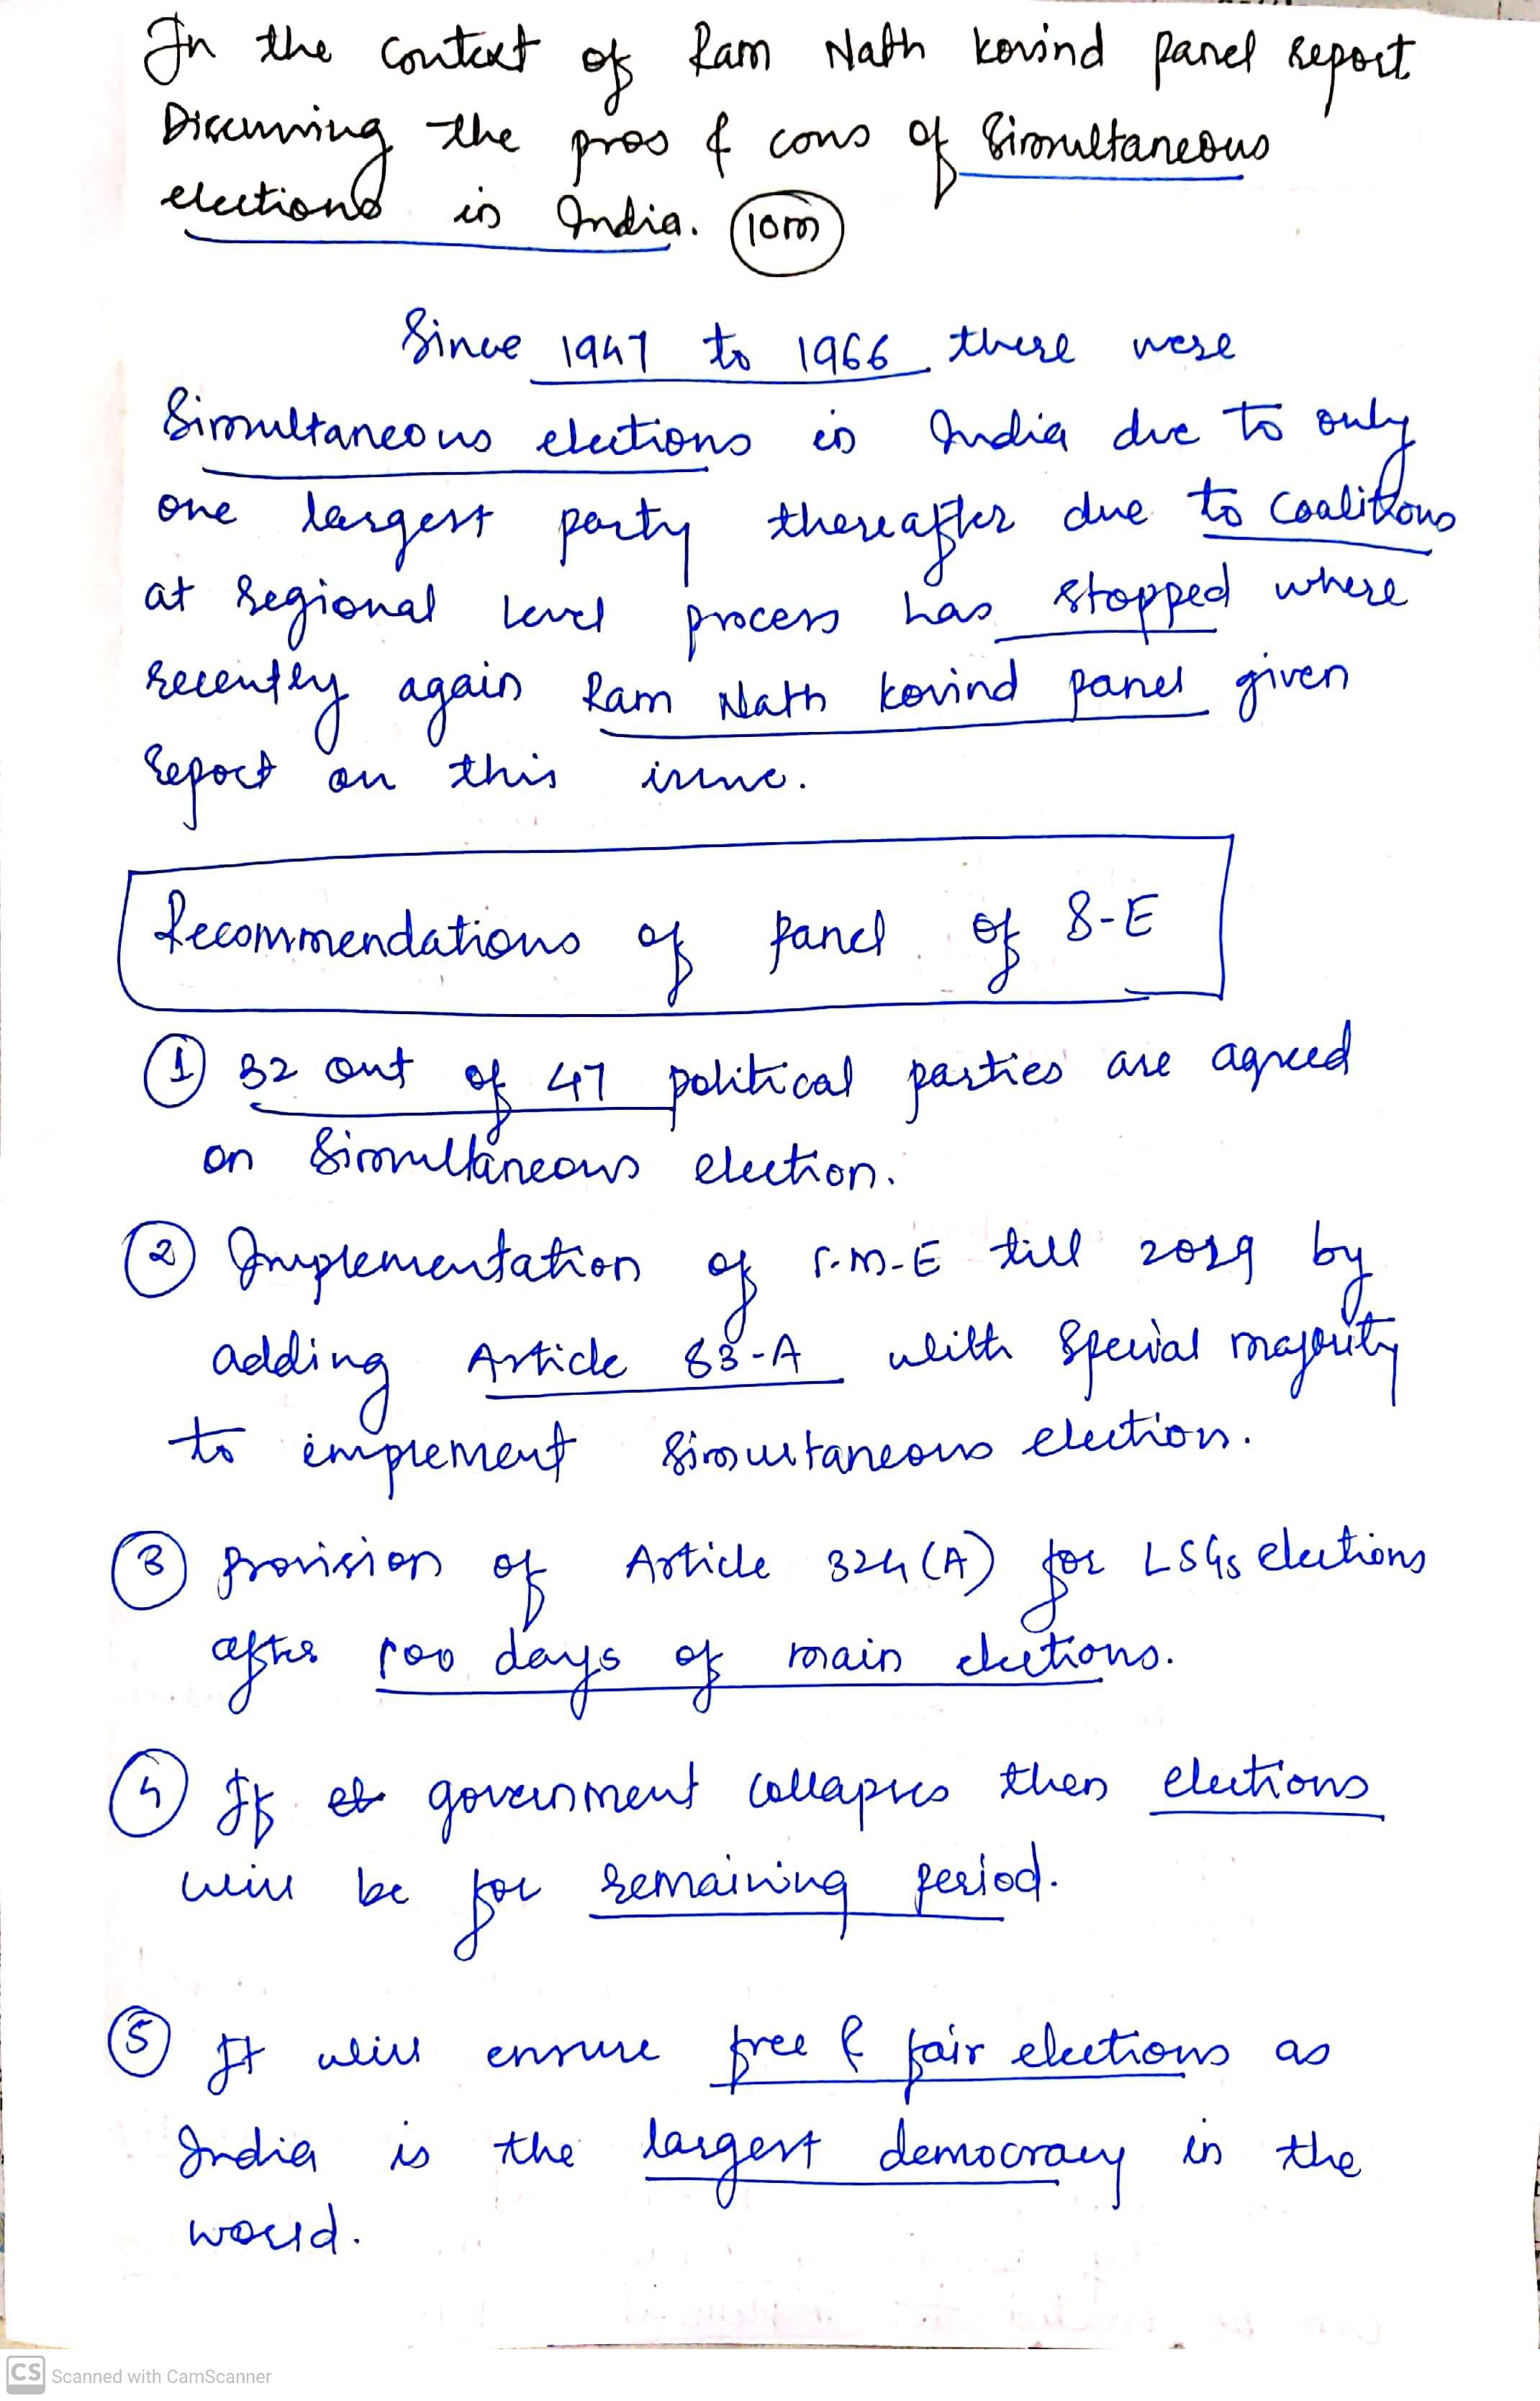 In the context of Ram Nath Kovind panel report
Discussing the pros & cons of Simultaneous
elections in India. (10m)
Since 1947 to 1966 there were
Simultaneous elections in India due to only
one largest party thereafter due to coalitions
at regional level process has stopped where
recently again Ram Nath Kovind panel given
report on this issue.
Recommendations of panel of S-E
① 32 out of 47 political parties are agreed
on Simultaneous election.
② Implementation of till 2029 by
adding Article 83-A with Special majority
to implement Simultaneous election.
③ provision of Article 324(A) for LSGs elections
after 100 days of main elections.
④ If government collapses then elections
will be for remaining period.
⑤ It will ensure free & fair elections as
India is the largest democracy in the
world.
CS Scanned with CamScanner